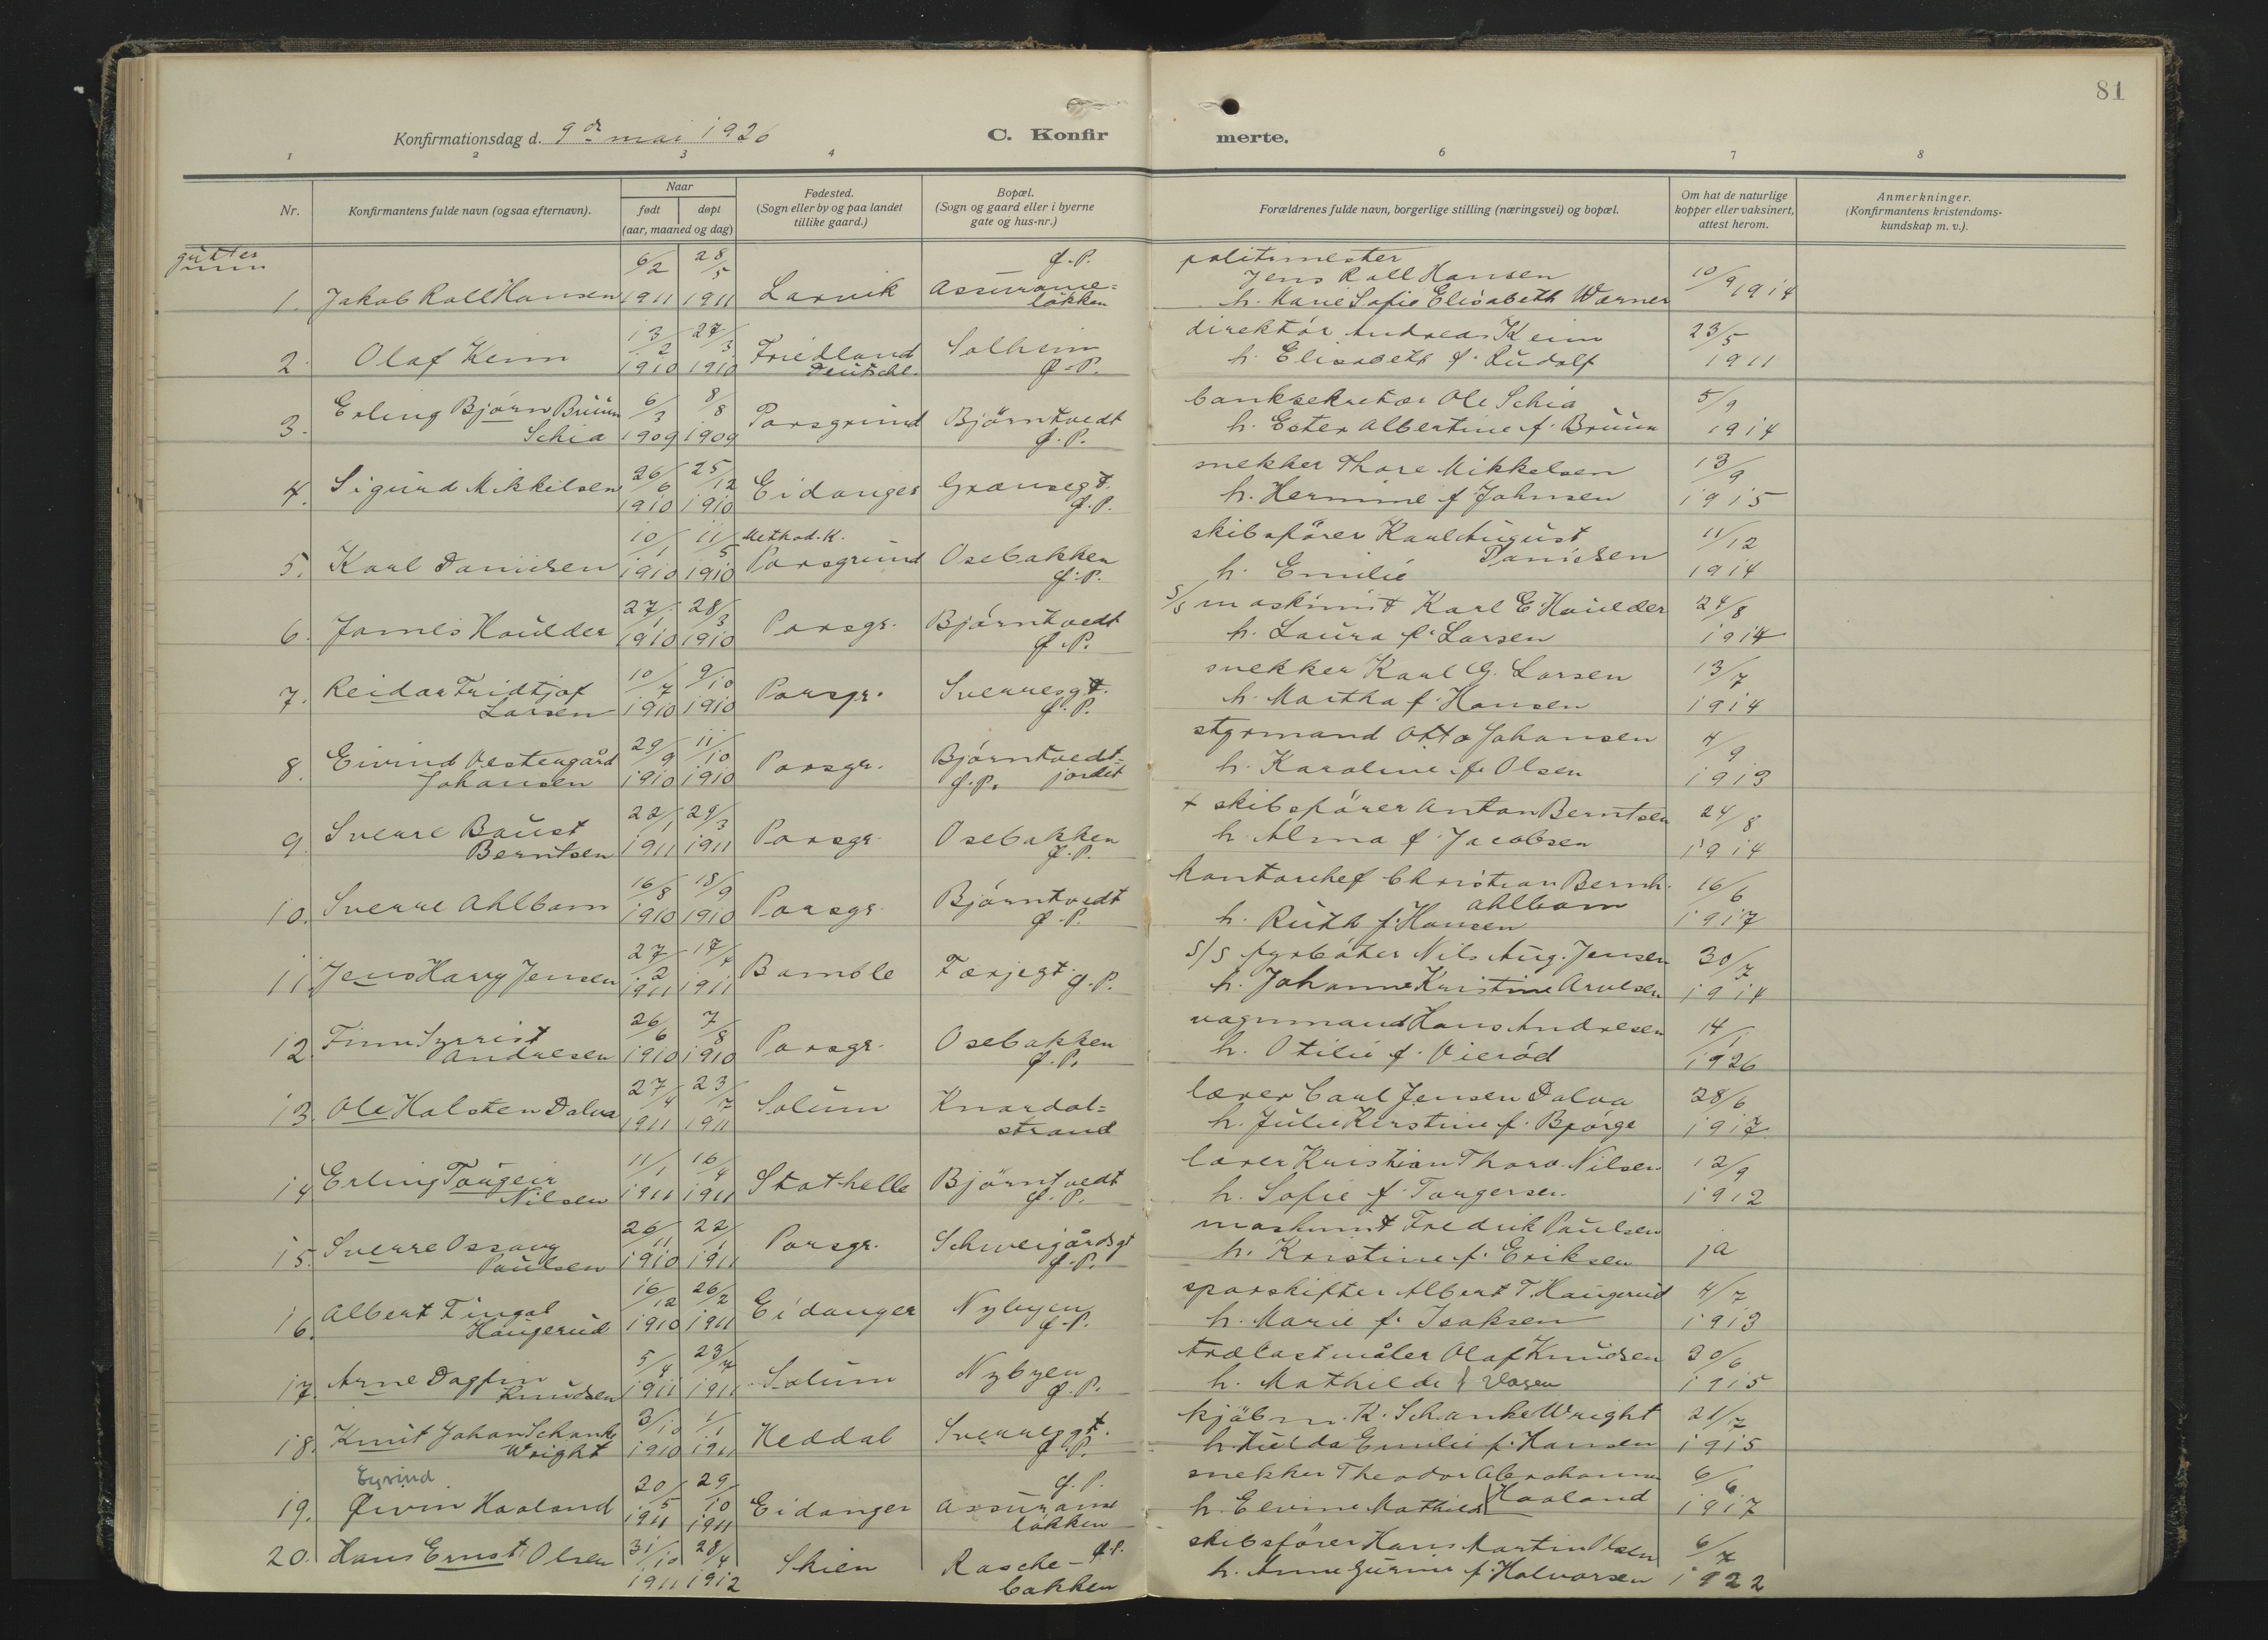 81
Konfirmationsdag d. 9de mai 1926
C. Konfir merte.
1 2 3 4 6 7 8
Nr.
Konfirmantens fulde navn (ogsaa efternavn).
Naar
født døpt
(aar, maaned og dag)
Fødested.
(Sogn eller by og paa landet
tillike gaard.)
Bopæl.
(Sogn og gaard eller i byerne
gate og hus-nr.)
Forældrenes fulde navn, borgerlige stilling (næringsvei) og bopæl.
Om hat de naturlige
kopper eller vaksinert,
attest herom.
Anmerkninger.
(Konfirmantens kristendoms-
kundskap m. v.).
gutter
6/2 28/5 ø.P. politimester
Jens Roll Hansen 10/9 1914
1. Jakob Roll Hansen 1911 1911 Larvik Assurance=
løkken h. Marie Sofie Elisabeth Wærner
13/2 27/3 direktör Andreas Keim 23/5
2. Olaf Keim 1910 1910 Friedland Solheim h. Elisabeth f. Rudolf 1911
Deutschl. Ø.P.
Erling Bjørn Bruun 6/3 8/8 banksekretær Ole Schia 5/9
3. Schia 1909 1909 Porsgrund Björntvedt h. Ester Albertine f. Bruun 1914
Ø.P.
26/6 25/12 snekker Thore Mikkelsen 13/9
4. Sigurd Mikkelsen 1910 1910 Eidanger Grønsegt. h. Hermine f. Johnsen 1915
Ø.P.
10/1 11/5 Method.K. skibsförer Karl August 11/12
5. Karl Danielsen 1910 1910 Porsgrund Osebakken Danielsen
Ø.P. h. Emilie 1914
27/1 28/3 S/S maskinist Karl E. Houlder 24/8
6. James Houlder 1910 1910 Porsgr. Bjørntvedt h. Laura f. Larsen 1914
Ø.P.
7. Reidar Fridtjof 10/7 9/10 Porsgr. Sverresgt. snekker Karl G. Larsen 13/7
Larsen 1910 1910 Ø.P. h. Martha f. Hansen 1914
29/9 11/10 styrmand Otto Johansen 4/9
8. Eivind Vestengård Porsgr. Bjørntvedt=
Johansen 1910 1910 Ø.P. jordet h. Karoline f. Olsen 1913
22/1 29/3 + skibsförer Anton Berntsen 24/8
9. Sverre Baust Porsgr. Osebakken h. Alma f. Jacobsen
Berntsen 1911 1911 Ø.P. 1914
16/8 18/9 kontorchef Christian Bernh. 16/6
10. Sverre Ahlbom 1910 1910 Porsgr. Bjørntvedt Ahlbom
Ø.P. h. Ruth f. Hansen 1917
27/2 17/4 S/S fyrböter Nils Aug. Jensen 30/7
11. Jens Harry Jensen 1911 1911 Bamble Færjegt. Ø.P. h. Johanne Kristine Arvesen 1914
26/6 7/8 vognmand Hans Andresen 14/1
12. Finn Syrrist Porsgr. Osebakken h. Otilie f. Vieröd
Andresen 1910 1910 Ø.P. 1926
27/4 23/7 lærer Carl Jensen Dalva 28/6
13. Ole Halsten Dalva 1911 1911 Solum Knardal= h. Julie Kirstine f. Bjørge 1917
strand
14. Erling Torgeir 11/1 16/4 Stathelle Björntvedt lærer Kristian Thorv. Nilsen 12/9
Nilsen 1911 1911 Ø.P. h. Sofie f. Torgersen 1912
26/11 22/1 maskinist Fredrik Paulsen
15. Sverre Ossavy Porsgr. Schweigårdsgt ja
Paulsen 1910 1911 Ø.P. h. Kristine f. Eriksen
16/12 26/2 sporskifter Albert T. Haugerud 4/7
16. Albert Fingal Eidanger Nybyen h. Marie f. Isaksen
Haugerud 1910 1911 Ø.P. 1913
5/4 23/4 trælastmåler Olaf Knudsen 30/6
17. Arne Dagfin Solum Nybyen
Knudsen 1911 1911 Ø.P. h. Mathilde f. Vasen 1915
3/10 1/1 kjöbm. K. Schanke Wright 21/7
18. Knut Johan Schanke Heddal Sverresgt.
Wright 1910 1911 Ø.P. h. Hulda Emilie f. Hansen 1915
Eyvind 20/5 29/10 Ø.P. snekker Theodor Abrahamsen 6/6
19. Øivin Haaland 1911 1911 Eidanger Assuranse Haaland
løkken h. Elvine Mathilde 1917
31/10 28/4 Ø.P. skibsförer Hans Martin Olsen 6/7
20. Hans Ernst Olsen 1911 1912 Skien Rasche-
bakken h. Anne Gurine f. Halvorsen 1922